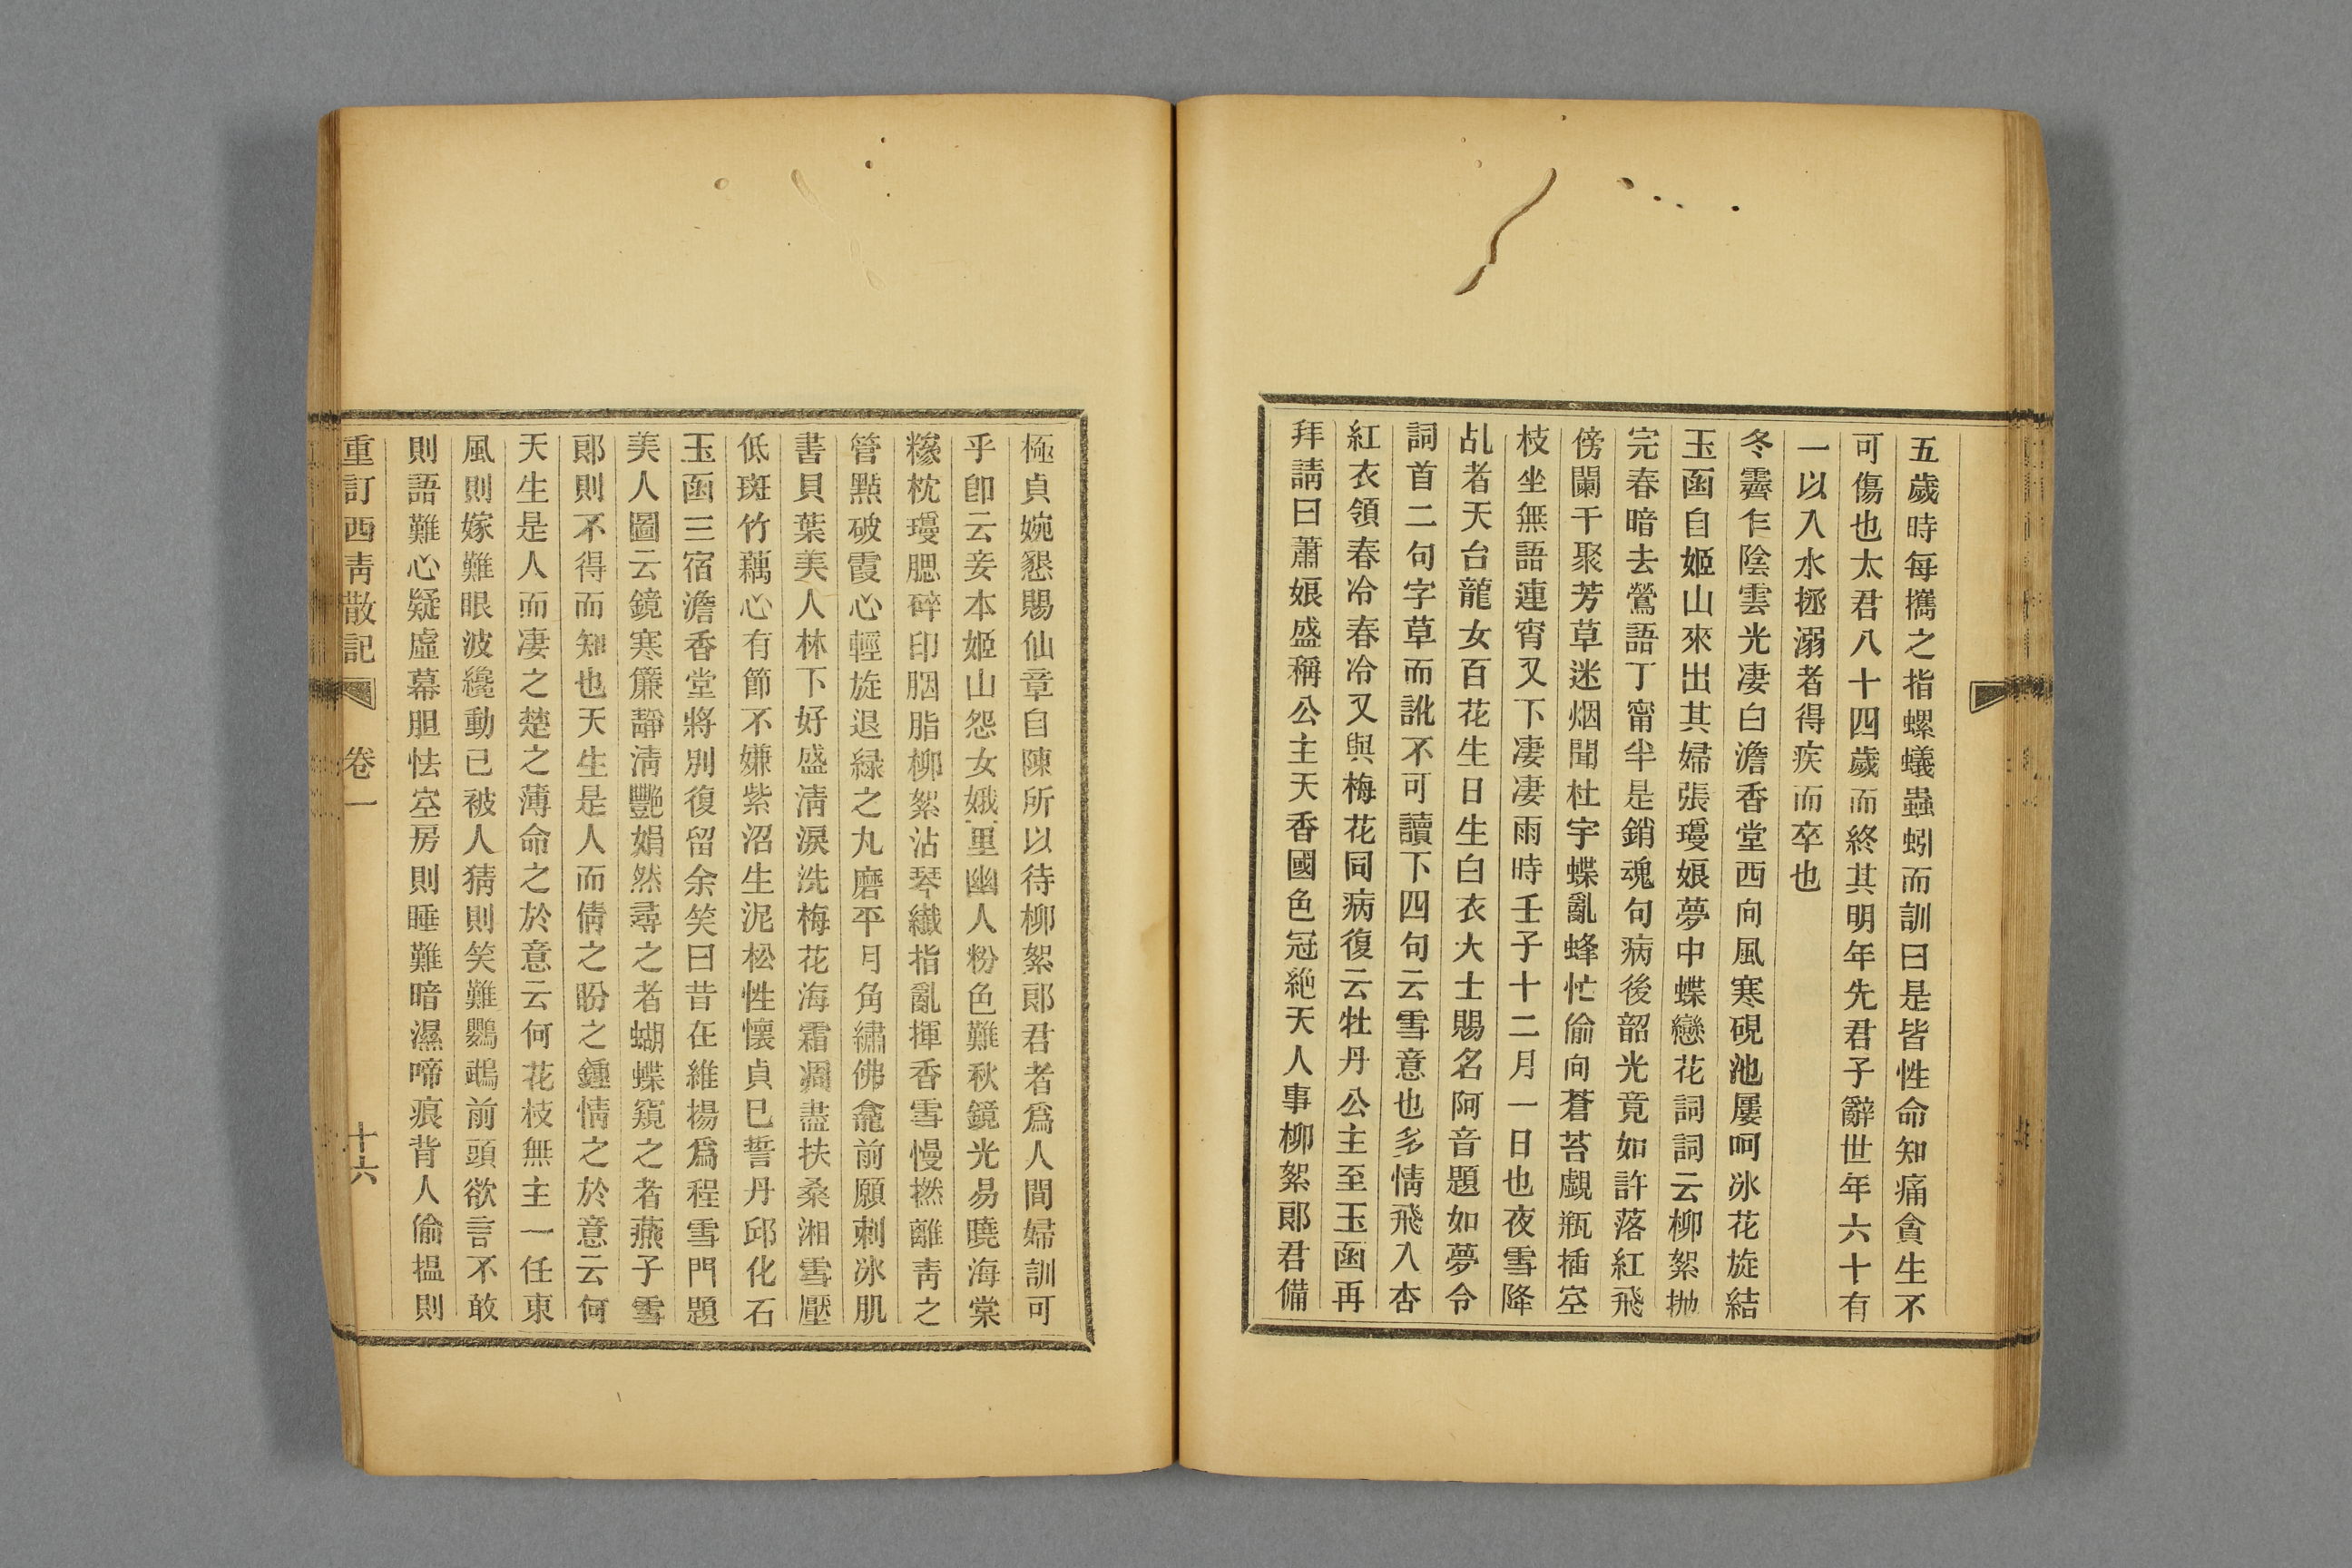 五歲時每攜之指螺蟻蟲蚓而訓曰是皆性命知痛貪生不
可傷也太君八十四歲而終其明年先君子辭世年六十有
一以入水拯溺者得疾而卒也
冬霽乍陰雲光凄白澹香堂西向風寒硯池屢呵冰花旋結
玉函自姬山來出其婦張瓊娘夢中蝶戀花詞詞云柳絮抛
完春暗去鶯語丁甯半是銷魂句病後韶光竟如許落紅飛
傍闌干聚芳草迷烟聞杜宇蝶亂蜂忙偷向蒼苔覷瓶插空
枝坐無語連宵又下凄凄雨時壬子十二月一日也夜雪降
乩者天台龍女百花生日生白衣大士賜名阿音題如夢令
詞首二句字草而訛不可讀下四句云雪意也多情飛入杏
紅衣領春冷春冷又與梅花同病復云牡丹公主至玉函再
拜請曰蕭娘盛稱公主天香國色冠絕天人事柳絮郎君備
極貞婉懇賜仙章自陳所以待柳絮郎君者爲人間婦訓可
乎卽云妾本姬山怨女娥里幽人粉色難秋鏡光易曉海棠
糝枕瓊腮碎印胭脂柳絮沾琴纖指亂揮香雪慢撚離靑之
管點破霞心輕旋退綠之丸磨平月角繡佛龕前願刺冰肌
書貝葉美人林下好盛淸淚洗梅花海霜凋盡扶桑湘雪壓
低斑竹藕心有節不嫌紫沼生泥松性懷貞巳誓丹邱化石
玉函三宿澹香堂將別復留余笑曰昔在維揚爲程雪門題
美人圖云鏡寒簾靜淸豔娟然尋之者蝴蝶窺之者燕子雪
郎則不得而知也天生是人而倩之盼之鍾情之於意云何
天生是人而凄之楚之薄命之於意云何花枝無主一任東
風則嫁難眼波纔動已被人猜則笑難鸚鵡前頭欲言不敢
則語難心疑虛幕胆怯空房則睡難暗濕啼痕背人偷揾則
重訂西靑散記 卷一 十六